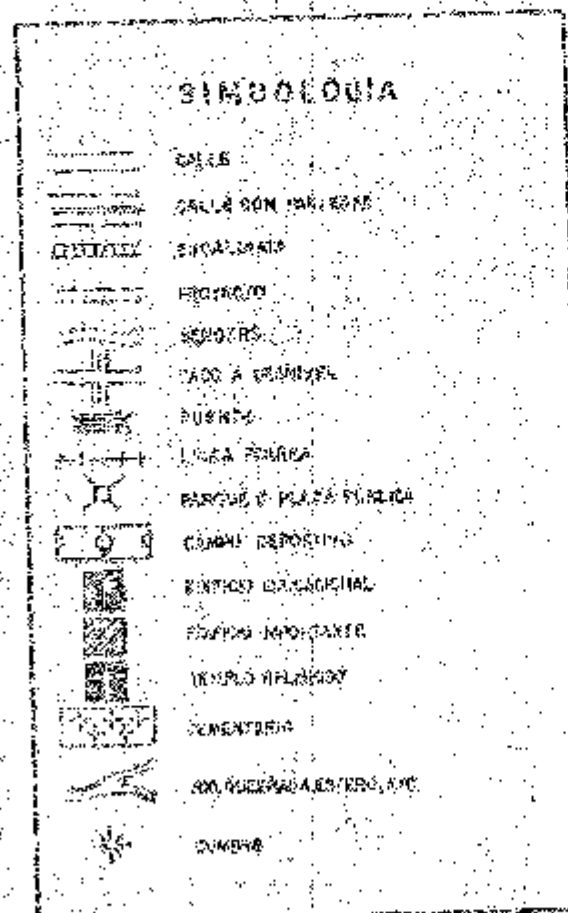 SIMBOLOGÍA
CALLE
CALLE CON
PROYECTO
SENDERO
PASO A DESNIVEL
PUENTE
LINEA FERREA
PARQUE O PLAZA PUBLICA
CAMPO DEPORTIVO
EDIFICIO EDUCACIONAL
EDIFICIO IMPORTANTE
TEMPLO RELIGIOSO
CEMENTERIO
RIO, QUEBRADA, ESTERO, ETC.
CUMBRE